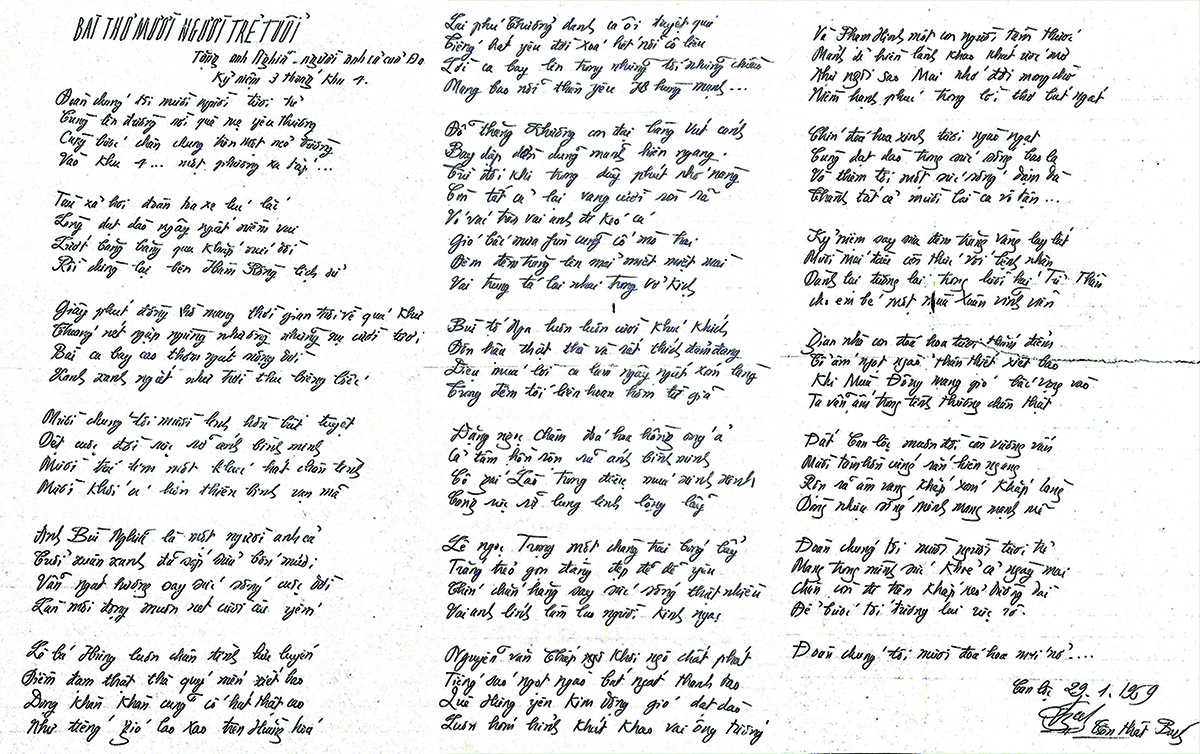 BÀI THƠ MƯỜI NGƯỜI TRẺ TUỔI
Tặng anh Nghiễn - người anh cả của Đo
Kỷ niệm 3 tháng khu 4.
Đoàn chúng tôi mười người tươi trẻ
Cùng lên đường nơi quê mẹ yêu thương
Cùng bước chân chung trên một nẻo đường
Vào khu 4... một phương xa tắp...
Từ xa hơi đoàn ba xe
Lòng dạt dào ngây ngất niềm vui
Lướt băng băng qua khắp núi đồi
Rồi dừng lại bên Hàm Rồng lịch sử
Giây phút đồng hồ mang thời gian trôi về quá khứ
Thoáng nét ngập ngừng nhường những nụ cười tươi
Bài ca bay cao thơm ngát nồng đời
Xanh xanh ngát như trời thu biêng biếc
Mười chúng tôi mười linh hồn bất tuyệt
Dệt cuộc đời rực rỡ ánh bình minh
Mười trái tim một khúc hát chân tình
Mười khối óc
Anh Bùi Nghiễn là một người anh cả
Tuổi xuân xanh đã sắp nửa bốn mươi
Vẫn ngạt hương say sức sống cuộc đời
Làn môi đọng muôn nét cười âu yếm
Lê bá Hùng luôn chân tình lưu luyến
Điềm đạm thật thà quý mến xiết bao
Dáng khàn khàn cũng cố hát thật cao
Như tiếng gió lao xao trên
Lại phú Thường danh ca ôi tuyệt quá
Tiếng hát yêu đời xoá hết nỗi cô liêu
Lời ca bay lên trong những tối những chiều
Mang bao nỗi thân yêu hùng mạnh...
Đỗ thắng Thường con đại bàng vút cánh
Bay dập dồn dũng mãnh hiên ngang.
Tuy đôi khi trong dãy phút nhớ nàng
Còn tất cả lại vang cười sôi rã
Vỗ vai trò vai anh đi kéo cá
Gió bấc mưa phùn cũng cố mò hai
Đêm đêm trăng lên mải miết miệt mài
Vai trung tá lại nhai trong vở kịch
Bùi tố Nga luôn luôn cười khúc khích
Đôn hậu thật thà và rất thích đảm đang
Điệu múa lời ca làm ngây ngất xóm làng
Trong đêm tối liên hoan hôm từ giã
Đặng ngọc Châm đoá hoa hồng óng ả
Cả tâm hồn rộn rã ánh bình minh
Cô gái Lào trong điệu múa xinh xinh
Càng rực rỡ lung linh lộng lẫy
Lê ngọc Trọng một chàng trai bóng bẩy
Trắng trẻo gọn gàng đẹp đẽ dễ yêu
Chín chắn hăng say sức sống thật nhiều
Vai anh lính làm bao người kinh ngạc
Nguyễn văn Thấp ngô khôi ngô chất phát
Tiếng sáo ngọt ngào bát ngát thanh tao
Quê Hưng yên Kim Động gió dạt dào
Luôn hóm hỉnh khúc khao vai ông tướng
Và Phạm Hinh một con người tầm thước
Mảnh dẻ hiền lành khao khát ước mơ
Như ngôi sao Mai nhỏ đợi mong chờ
Niềm hạnh phúc trong lời thơ bát ngát
Chín đoá hoa xinh tươi ngào ngạt
Cùng dạt dào trong sức sống bao la
Và thêm tôi một sức sống đậm đà
Thành tất cả mười bài ca vô tận...
Kỷ niệm say sưa đêm trăng vàng lay lắt
Mười mái đầu còn thức với bệnh nhân
Dành lại tương lai trong lưỡi hái Tử Thần
cho em bé một mùa Xuân vĩnh viễn
Gian nhỏ con đoá hoa tươi thắm điểm
Tô ấm ngọt ngào thân thiết xiết bao
Khi Mùa Đông mang gió bấc vọng vào
Ta vẫn ấm trong tình thương chân thật
Đất Can lộc muôn đời còn vương vấn
Mười tâm hồn cứng rắn hiên ngang
Rộn rã âm vang khắp xóm khắp làng
Dòng nhựa sống mình mang mạnh mẽ
Đoàn chúng tôi mười người tươi trẻ
Mang trong mình sức khoẻ cả ngày mai
Chân còn đi trên khắp nẻo đường dài
Để bước tới tương lai rực rỡ.
Đoàn chúng tôi mười đoá hoa mới nở....
Can lộc 29.1.1959
Tôn Thất Bách